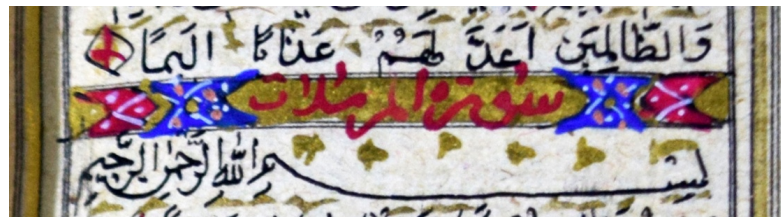 وَالظَّالِمِينَ اَعَدَّ لَهُمْ عَذَابًا اَلِيمًا
سورة المرسلات
بِسْمِ اللّٰهِ الرَّحْمٰنِ الرَّحِيمِ